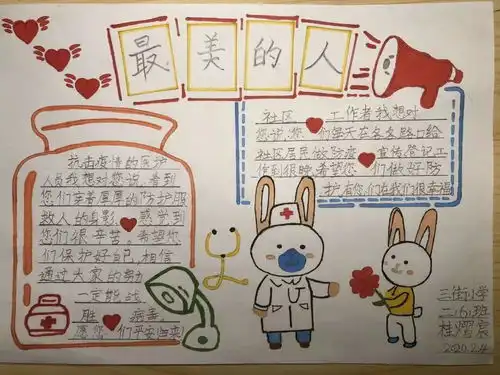 最美的人
抗击疫情的医护
人员我想对您说:看到
您们穿着厚厚的防护服
救人的身影 感觉到
您们很辛苦。希望您
们保护好自己,相信
通过大家的努力
一定能战
胜 病毒。
愿您 们平安归来!
社区 工作者我想对
您说:您 们每天在各各路口给
社区居民做防疫 宣传登记工
作到很晚。希望您 们做好防
护有您们在我们很幸福
三街小学
二(6)班
桂熠宸
2020.2.4